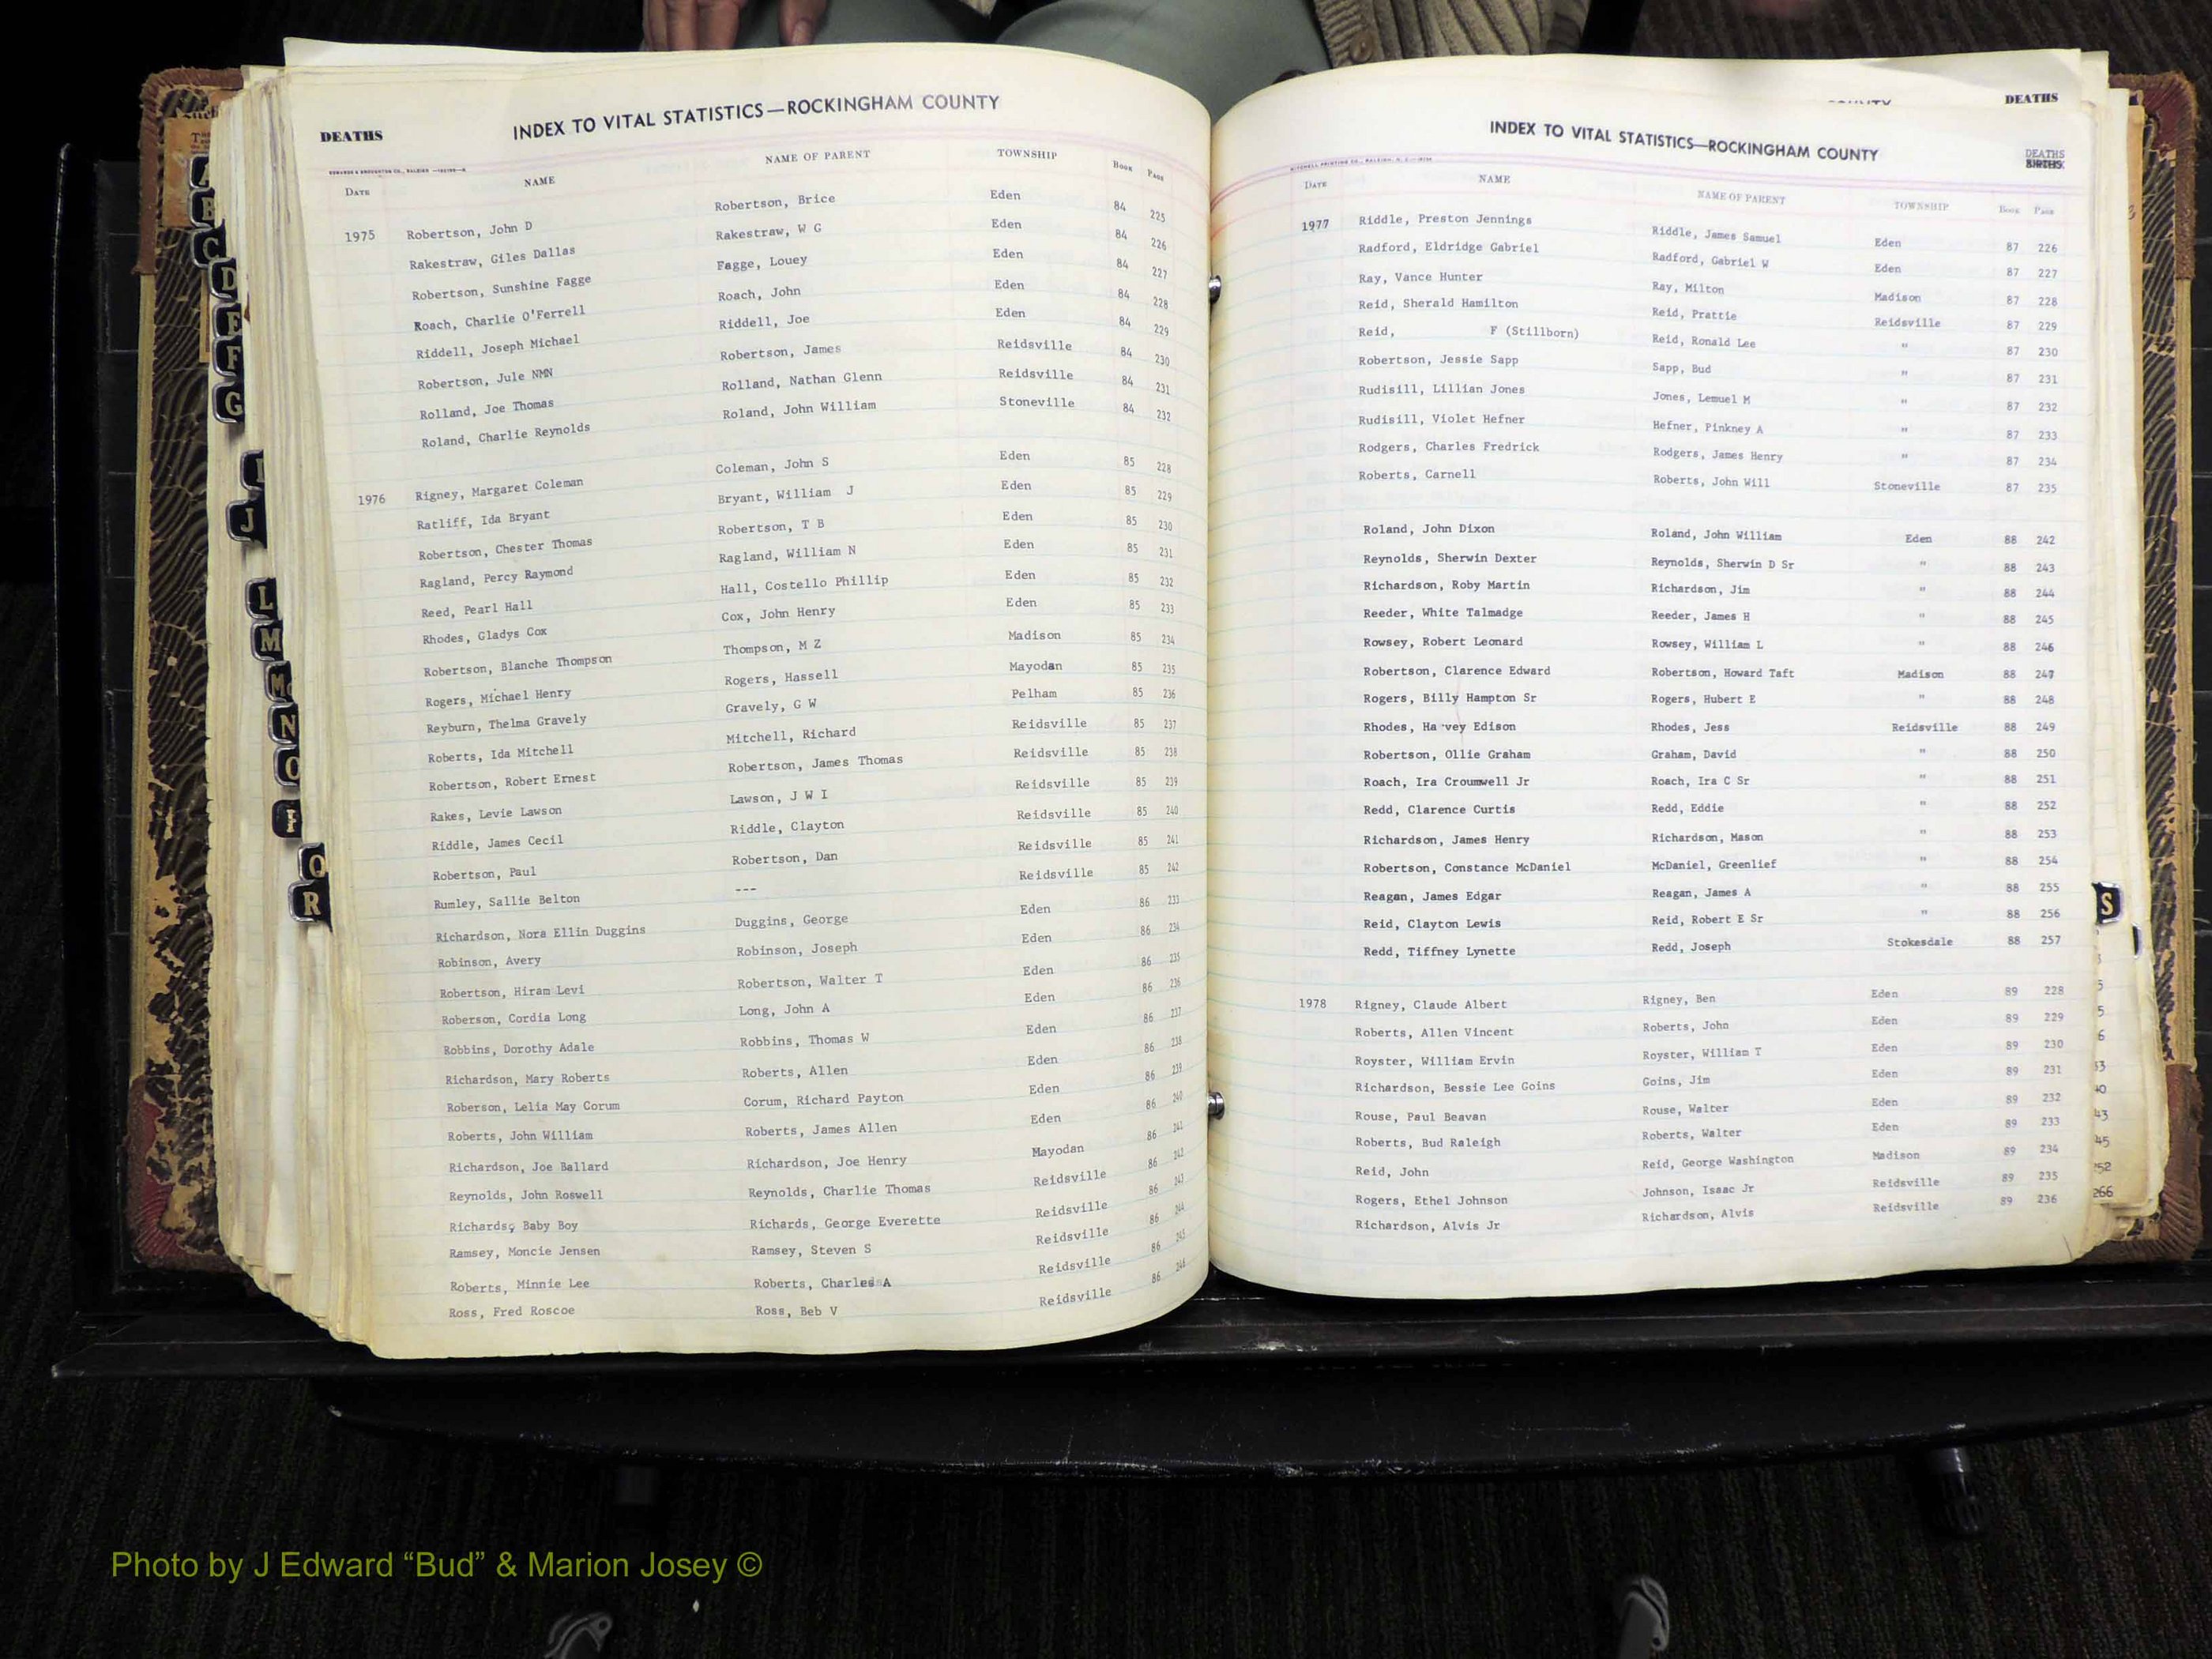 DEATHS INDEX TO VITAL STATISTICS—ROCKINGHAM COUNTY
DATE NAME NAME OF PARENT TOWNSHIP Book Page
1975 Robertson, John D Robertson, Brice Eden 84 225
Rakestraw, Giles Dallas Rakestraw, W G Eden 84 226
Robertson, Sunshine Fagge Fagge, Louey Eden 84 227
Roach, Charlie O'Ferrell Roach, John Eden 84 228
Riddell, Joseph Michael Riddell, Joe Eden 84 229
Robertson, Jule NMN Robertson, James Reidsville 84 230
Rolland, Joe Thomas Rolland, Nathan Glenn Reidsville 84 231
Roland, Charlie Reynolds Roland, John William Stoneville 84 232
1976 Rigney, Margaret Coleman Coleman, John S Eden 85 228
Ratliff, Ida Bryant Bryant, William J Eden 85 229
Robertson, Chester Thomas Robertson, T B Eden 85 230
Ragland, Percy Raymond Ragland, William N Eden 85 231
Reed, Pearl Hall Hall, Costello Phillip Eden 85 232
Rhodes, Gladys Cox Cox, John Henry Eden 85 233
Robertson, Blanche Thompson Thompson, M Z Madison 85 234
Rogers, Michael Henry Rogers, Hassell Mayodan 85 235
Reyburn, Thelma Gravely Gravely, G W Pelham 85 236
Roberts, Ida Mitchell Mitchell, Richard Reidsville 85 237
Robertson, Robert Ernest Robertson, James Thomas Reidsville 85 238
Rakes, Levie Lawson Lawson, J W I Reidsville 85 239
Riddle, James Cecil Riddle, Clayton Reidsville 85 240
Robertson, Paul Robertson, Dan Reidsville 85 241
Rumley, Sallie Belton --- Reidsville 85 242
Richardson, Nora Ellin Duggins Duggins, George Eden 86 233
Robinson, Avery Robinson, Joseph Eden 86 234
Robertson, Hiram Levi Robertson, Walter T Eden 86 235
Roberson, Cordia Long Long, John A Eden 86 236
Robbins, Dorothy Adale Robbins, Thomas W Eden 86 237
Richardson, Mary Roberts Roberts, Allen Eden 86 238
Roberson, Lelia May Corum Corum, Richard Payton Eden 86 239
Roberts, John William Roberts, James Allen Eden 86 240
Richardson, Joe Ballard Richardson, Joe Henry Mayodan 86 241
Reynolds, John Roswell Reynolds, Charlie Thomas Reidsville 86 242
Richards, Baby Boy Richards, George Everette Reidsville 86 243
Ramsey, Moncie Jensen Ramsey, Steven S Reidsville 86 244
Roberts, Minnie Lee Roberts, Charles A Reidsville 86 245
Ross, Fred Roscoe Ross, Beb V Reidsville 86 246
DEATHS
INDEX TO VITAL STATISTICS—ROCKINGHAM COUNTY DEATHS
BIRTHS
DATE NAME NAME OF PARENT TOWNSHIP Book Page
1977 Riddle, Preston Jennings Riddle, James Samuel Eden 87 226
Radford, Eldridge Gabriel Radford, Gabriel W Eden 87 227
Ray, Vance Hunter Ray, Milton Madison 87 228
Reid, Sherald Hamilton Reid, Prattie Reidsville 87 229
Reid, F (Stillborn) Reid, Ronald Lee " 87 230
Robertson, Jessie Sapp Sapp, Bud " 87 231
Rudisill, Lillian Jones Jones, Lemuel M " 87 232
Rudisill, Violet Hefner Hefner, Pinkney A " 87 233
Rodgers, Charles Fredrick Rodgers, James Henry " 87 234
Roberts, Carnell Roberts, John Will Stoneville 87 235
Roland, John Dixon Roland, John William Eden 88 242
Reynolds, Sherwin Dexter Reynolds, Sherwin D Sr " 88 243
Richardson, Roby Martin Richardson, Jim " 88 244
Reeder, White Talmadge Reeder, James H " 88 245
Rowsey, Robert Leonard Rowsey, William L " 88 246
Robertson, Clarence Edward Robertson, Howard Taft Madison 88 247
Rogers, Billy Hampton Sr Rogers, Hubert E " 88 248
Rhodes, Harvey Edison Rhodes, Jess Reidsville 88 249
Robertson, Ollie Graham Graham, David " 88 250
Roach, Ira Croumwell Jr Roach, Ira C Sr " 88 251
Redd, Clarence Curtis Redd, Eddie " 88 252
Richardson, James Henry Richardson, Mason " 88 253
Robertson, Constance McDaniel McDaniel, Greenlief " 88 254
Reagan, James Edgar Reagan, James A " 88 255
Reid, Clayton Lewis Reid, Robert E Sr " 88 256
Redd, Tiffney Lynette Redd, Joseph Stokesdale 88 257
1978 Rigney, Claude Albert Rigney, Ben Eden 89 228
Roberts, Allen Vincent Roberts, John Eden 89 229
Royster, William Ervin Royster, William T Eden 89 230
Richardson, Bessie Lee Goins Goins, Jim Eden 89 231
Rouse, Paul Beavan Rouse, Walter Eden 89 232
Roberts, Bud Raleigh Roberts, Walter Eden 89 233
Reid, John Reid, George Washington Madison 89 234
Rogers, Ethel Johnson Johnson, Isaac Jr Reidsville 89 235
Richardson, Alvis Jr Richardson, Alvis Reidsville 89 236
A
B
C
D
E
F
G
I
J
L
M
Mc
N
O
Q
R
S
Photo by J Edward “Bud” & Marion Josey ©